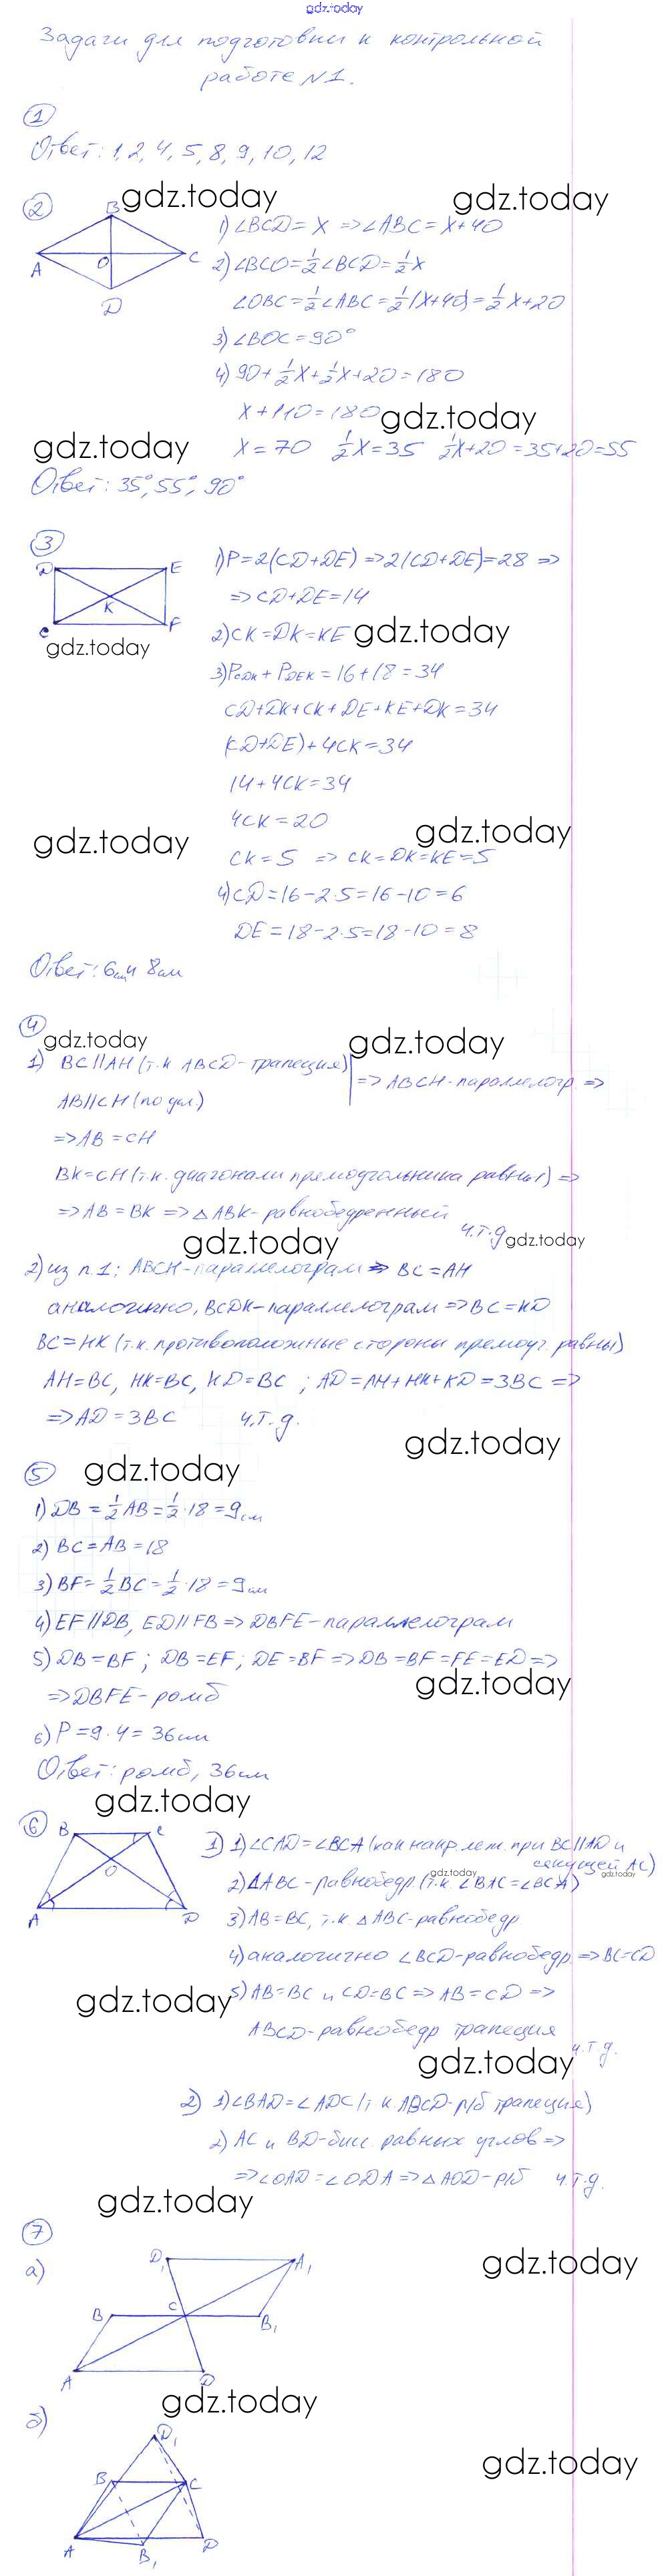 gdz.today
Задачи для подготовки к контрольной
работе №1.
1
Ответ: 1, 2, 4, 5, 8, 9, 10, 12
2
gdz.today
gdz.today
B
A
O
C
D
1) ∠BCD = X => ∠ABC = X+40
2) ∠BCO = 1/2 ∠BCD = 1/2 X
∠OBC = 1/2 ∠ABC = 1/2 (X+40) = 1/2 X+20
3) ∠BOC = 90°
4) 90 + 1/2 X + 1/2 X + 20 = 180
X + 110 = 180
gdz.today
gdz.today
X = 70 1/2 X = 35 1/2 X+20 = 35+20=55
Ответ: 35°, 55°, 90°
3
D E
K
C F
gdz.today
1) P = 2(CD+DE) => 2(CD+DE)=28 =>
=> CD+DE=14
2) CK = DK = KE
gdz.today
3) PCDK + PDEK = 16+18 = 34
CD+DK+CK+DE+KE+DK=34
(CD+DE)+4CK=34
14+4CK=34
4CK = 20
gdz.today
gdz.today
CK = 5 => CK=DK=KE=5
4) CD = 16-2·5=16-10=6
DE = 18-2·5=18-10=8
Ответ: 6см и 8см
4
gdz.today
gdz.today
1) BC||AH (т.к ABCD-трапеция)
AB||CH (по усл.)
=> ABCH-параллелогр. =>
=> AB = CH
BK=CH (т.к. диагонали прямоугольника равны) =>
=> AB = BK => △ABK-равнобедренный
ч.т.д
gdz.today
gdz.today
2) из п.1; ABCH-параллелограм => BC=AH
аналогично, BCDK-параллелограм => BC=KD
BC=HK (т.к. противоположные стороны прямоуг. равны)
AH=BC, HK=BC, KD=BC ; AD=AH+HK+KD=3BC =>
=> AD = 3BC ч.т.д.
gdz.today
5
gdz.today
1) DB = 1/2 AB = 1/2 · 18 = 9см
2) BC=AB=18
3) BF = 1/2 BC = 1/2 · 18 = 9см
4) EF||DB, ED||FB => DBFE-параллелограм
5) DB=BF ; DB=EF; DE=BF => DB=BF=FE=ED =>
=> DBFE-ромб
gdz.today
6) P = 9·4 = 36см
Ответ: ромб, 36см
gdz.today
6
B C
O
A D
1) 1) ∠CAD=∠BCA (как накр.леж. при BC||AD и
секущей AC)
gdz.today
gdz.today
2) △ABC-равнобедр (т.к. ∠BAC=∠BCA)
3) AB=BC, т.к △ABC-равнобедр
4) аналогично ∠BCD-равнобедр => BC=CD
gdz.today
5) AB=BC и CD=BC => AB=CD =>
ABCD-равнобедр трапеция
ч.т.д.
gdz.today
2) 1) ∠BAD=∠ADC (т к. ABCD-р/б трапеция)
2) AC и BD-бис. равных углов =>
=> ∠OAD=∠ODA => △AOD-р/б ч.т.д.
gdz.today
7
а)
gdz.today
D1 A1
B C B1
A D
gdz.today
б)
D1
gdz.today
B C
A B1 D